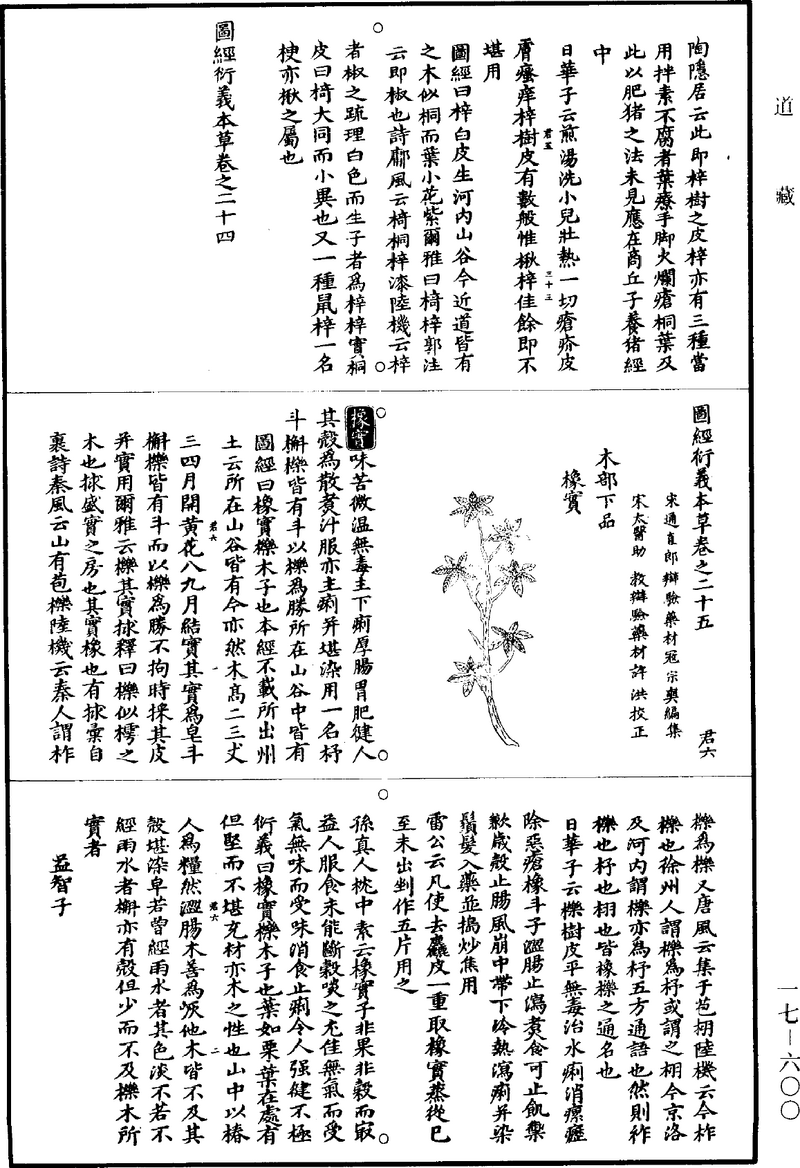 道藏
陶隱居云此即梓樹之皮梓亦有三種當
用拌素不腐者葉療手脚火爛瘡桐葉及
此以肥猪之法未見應在商丘子養猪經
中
日華子云煎湯洗小兒壯熱一切瘡疥皮
膚瘙痒梓樹皮有數般惟楸梓佳餘即不
堪用
君五
三十三
圖經曰梓白皮生河內山谷今近道皆有
之木似桐而葉小花紫爾雅曰椅梓郭注
云即楸也詩鄘風云椅桐梓漆陸機云梓
者楸之疏理白色而生子者爲梓梓實桐
皮曰椅大同而小異也又一種鼠梓一名
楰亦楸之屬也
圖經衍義本草卷之二十四
圖經衍義本草卷之二十五
君六
宋通直郎辯驗藥材寇宗奭編集
宋太醫助教辯驗藥材許洪校正
木部下品
橡實
橡實味苦微溫無毒主下痢厚腸胃肥健人
其殼爲散煑汁服亦主痢并堪染用一名杼
斗槲櫟皆有斗以櫟爲勝所在山谷中皆有
圖經曰橡實櫟木子也本經不載所出州
土云所在山谷皆有今亦然木高二三丈
君六
一
三四月開黃花八九月結實其實爲皂斗
槲櫟皆有斗而以櫟爲勝不拘時採其皮
并實用爾雅云櫟其實捄釋曰櫟似樗之
木也捄盛實之房也其實橡也有捄彙自
裹詩秦風云山有苞櫟陸機云秦人謂柞
櫟爲櫟又唐風云集于苞栩陸機云今柞
櫟也徐州人謂櫟爲杼或謂之栩今京洛
及河內謂櫟亦爲杼五方通語也然則柞
櫟也杼也栩也皆橡櫟之通名也
日華子云櫟樹皮平無毒治水痢消瘰癧
除惡瘡橡斗子澀腸止瀉煑食可止飢禦
歉歲殼止腸風崩中帶下冷熱瀉痢并染
鬚髮入藥並搗炒焦用
雷公云凡使去麤皮一重取橡實蒸從巳
至未出剉作五片用之
孫真人枕中素云橡實子非果非穀而最
益人服食未能斷穀啖之尤佳無氣而受
氣無味而受味消食止痢令人强健不極
衍義曰橡實櫟木子也葉如栗葉在處有
但堅而不堪充材亦木之性也山中以椿
君六
二
人爲糧然澀腸木善爲炭他木皆不及其
殼堪染皁若曾經雨水者其色淡不若不
經雨水者槲亦有殼但少而不及櫟木所
實者
益智子
一七—六〇〇